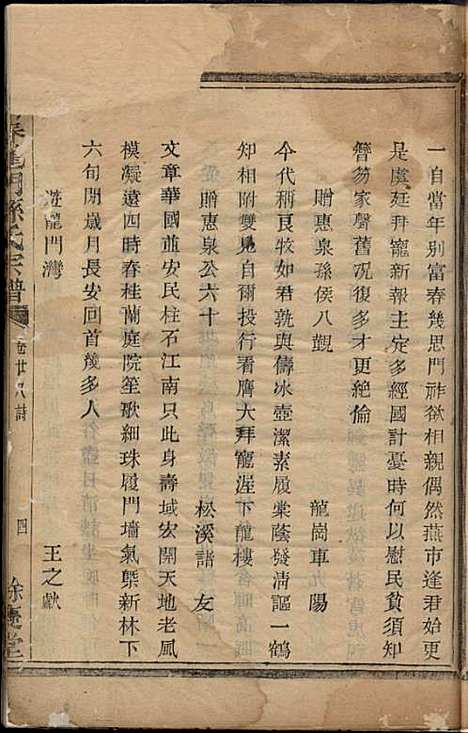 一自當年別富春幾思門祚欲相親偶然燕市逢君始更
是虞廷拜寵新報主定多經國計憂時何以慰民貧須知
簪笏家聲舊況復多才更絕倫
贈惠泉孫侯八觀 龍崗車陽
今代稱良牧如君孰與儔冰壺潔素履棠蔭發清謳一鶴
知相附雙鳧自爾投行看膺大拜寵渥下龍樓
贈惠泉公六十 松溪諸友
文章華國並安民柱石江南只此身壽域宏開天地老風
模凝遠四時春桂蘭庭院笙歌細珠履門墻氣槩新林下
六旬閒歲月長安回首幾多人
遊龍門灣 王之猷
龍門孫氏宗譜
卷廿八詩
四
餘慶堂